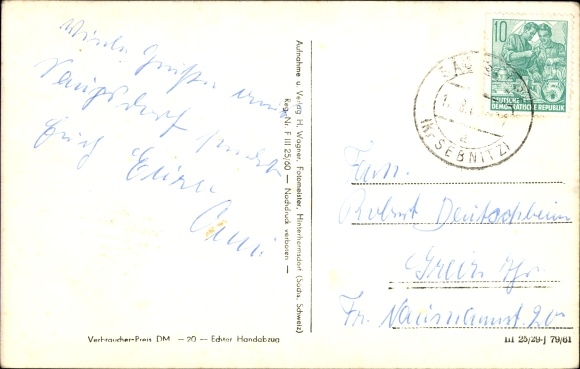 Viele Grüße aus
sendet
Euch Eure
Aufnahme u. Verlag H. Wagner, Fotomeister, Hinterhermsdorf (Sächs. Schweiz)
Reg.-Nr. F III 25/60 — Nachdruck verboten —
Verbraucher-Preis DM —20— Echter Handabzug
10
DEUTSCHE
DEMOKRATISCHE REPUBLIK
(Kr. SEBNITZ)
a
Fam.
Robert Deutschbein
Greiz Thr.
Fr.
III 25/29-J 79/61